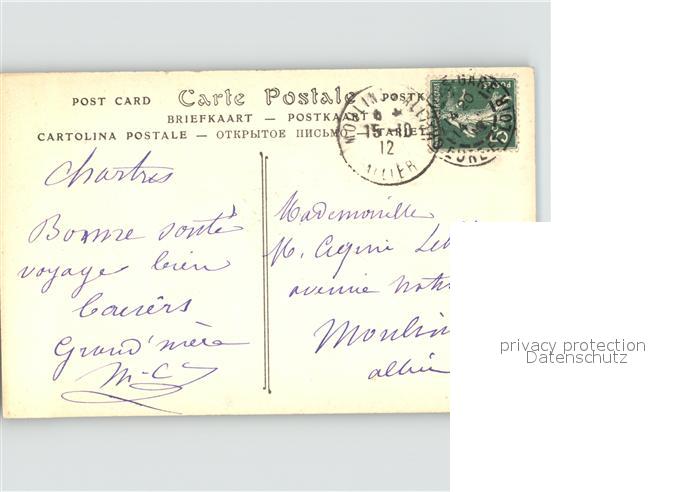 POST CARD Carte Postale POSTK
BRIEFKAART — POSTKAART
CARTOLINA POSTALE — ОТКРЫТОЕ ПИСЬМО
MOULINS
15-10
12
ALLIER
Chartres
Bonne santé
voyage bien
baisers
Grand'mère
M-C
Mademoiselle
M.
avenue Notr
Moulin
allier
privacy protection
Datenschutz